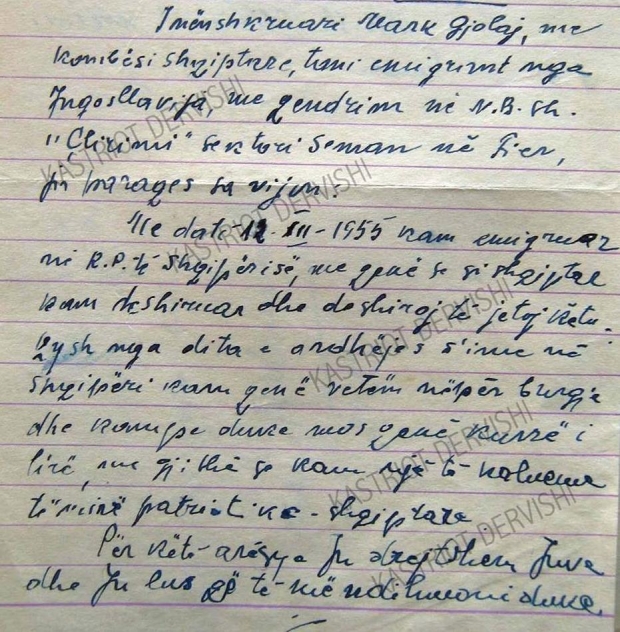 I nënshkruari Mark Gjolaj, me
kombësi shqiptare, tani emigrant nga
Jugosllavija, me qendrim në N.B.sh.
"Clirimi" sektori Seman në Fier,
Ju parages sa vijon.
Me datë 12-XII-1955 kam emigruar
në R.P. të Shqipërisë, me qenë se si shqiptar
kam dëshiruar dhe deshiroj të jetoj këtu.
Qysh nga dita e ardhëjes s'ime në
Shqipëri kam qenë vetëm nëpër burgje
dhe kampe duke mos qenë kurrë i
lirë, me gjithë se kam një të kalueme
të mirë patriotike-shqiptare
Për këtë arësye Ju drejtohem Juve
dhe Ju lus që të më ndihmoni duke,
KASTRIOT DERVISHI
KASTRIOT DERVISHI
KASTRIOT DERVISHI
KASTRIOT DERVISHI
KASTRIOT DERVISHI